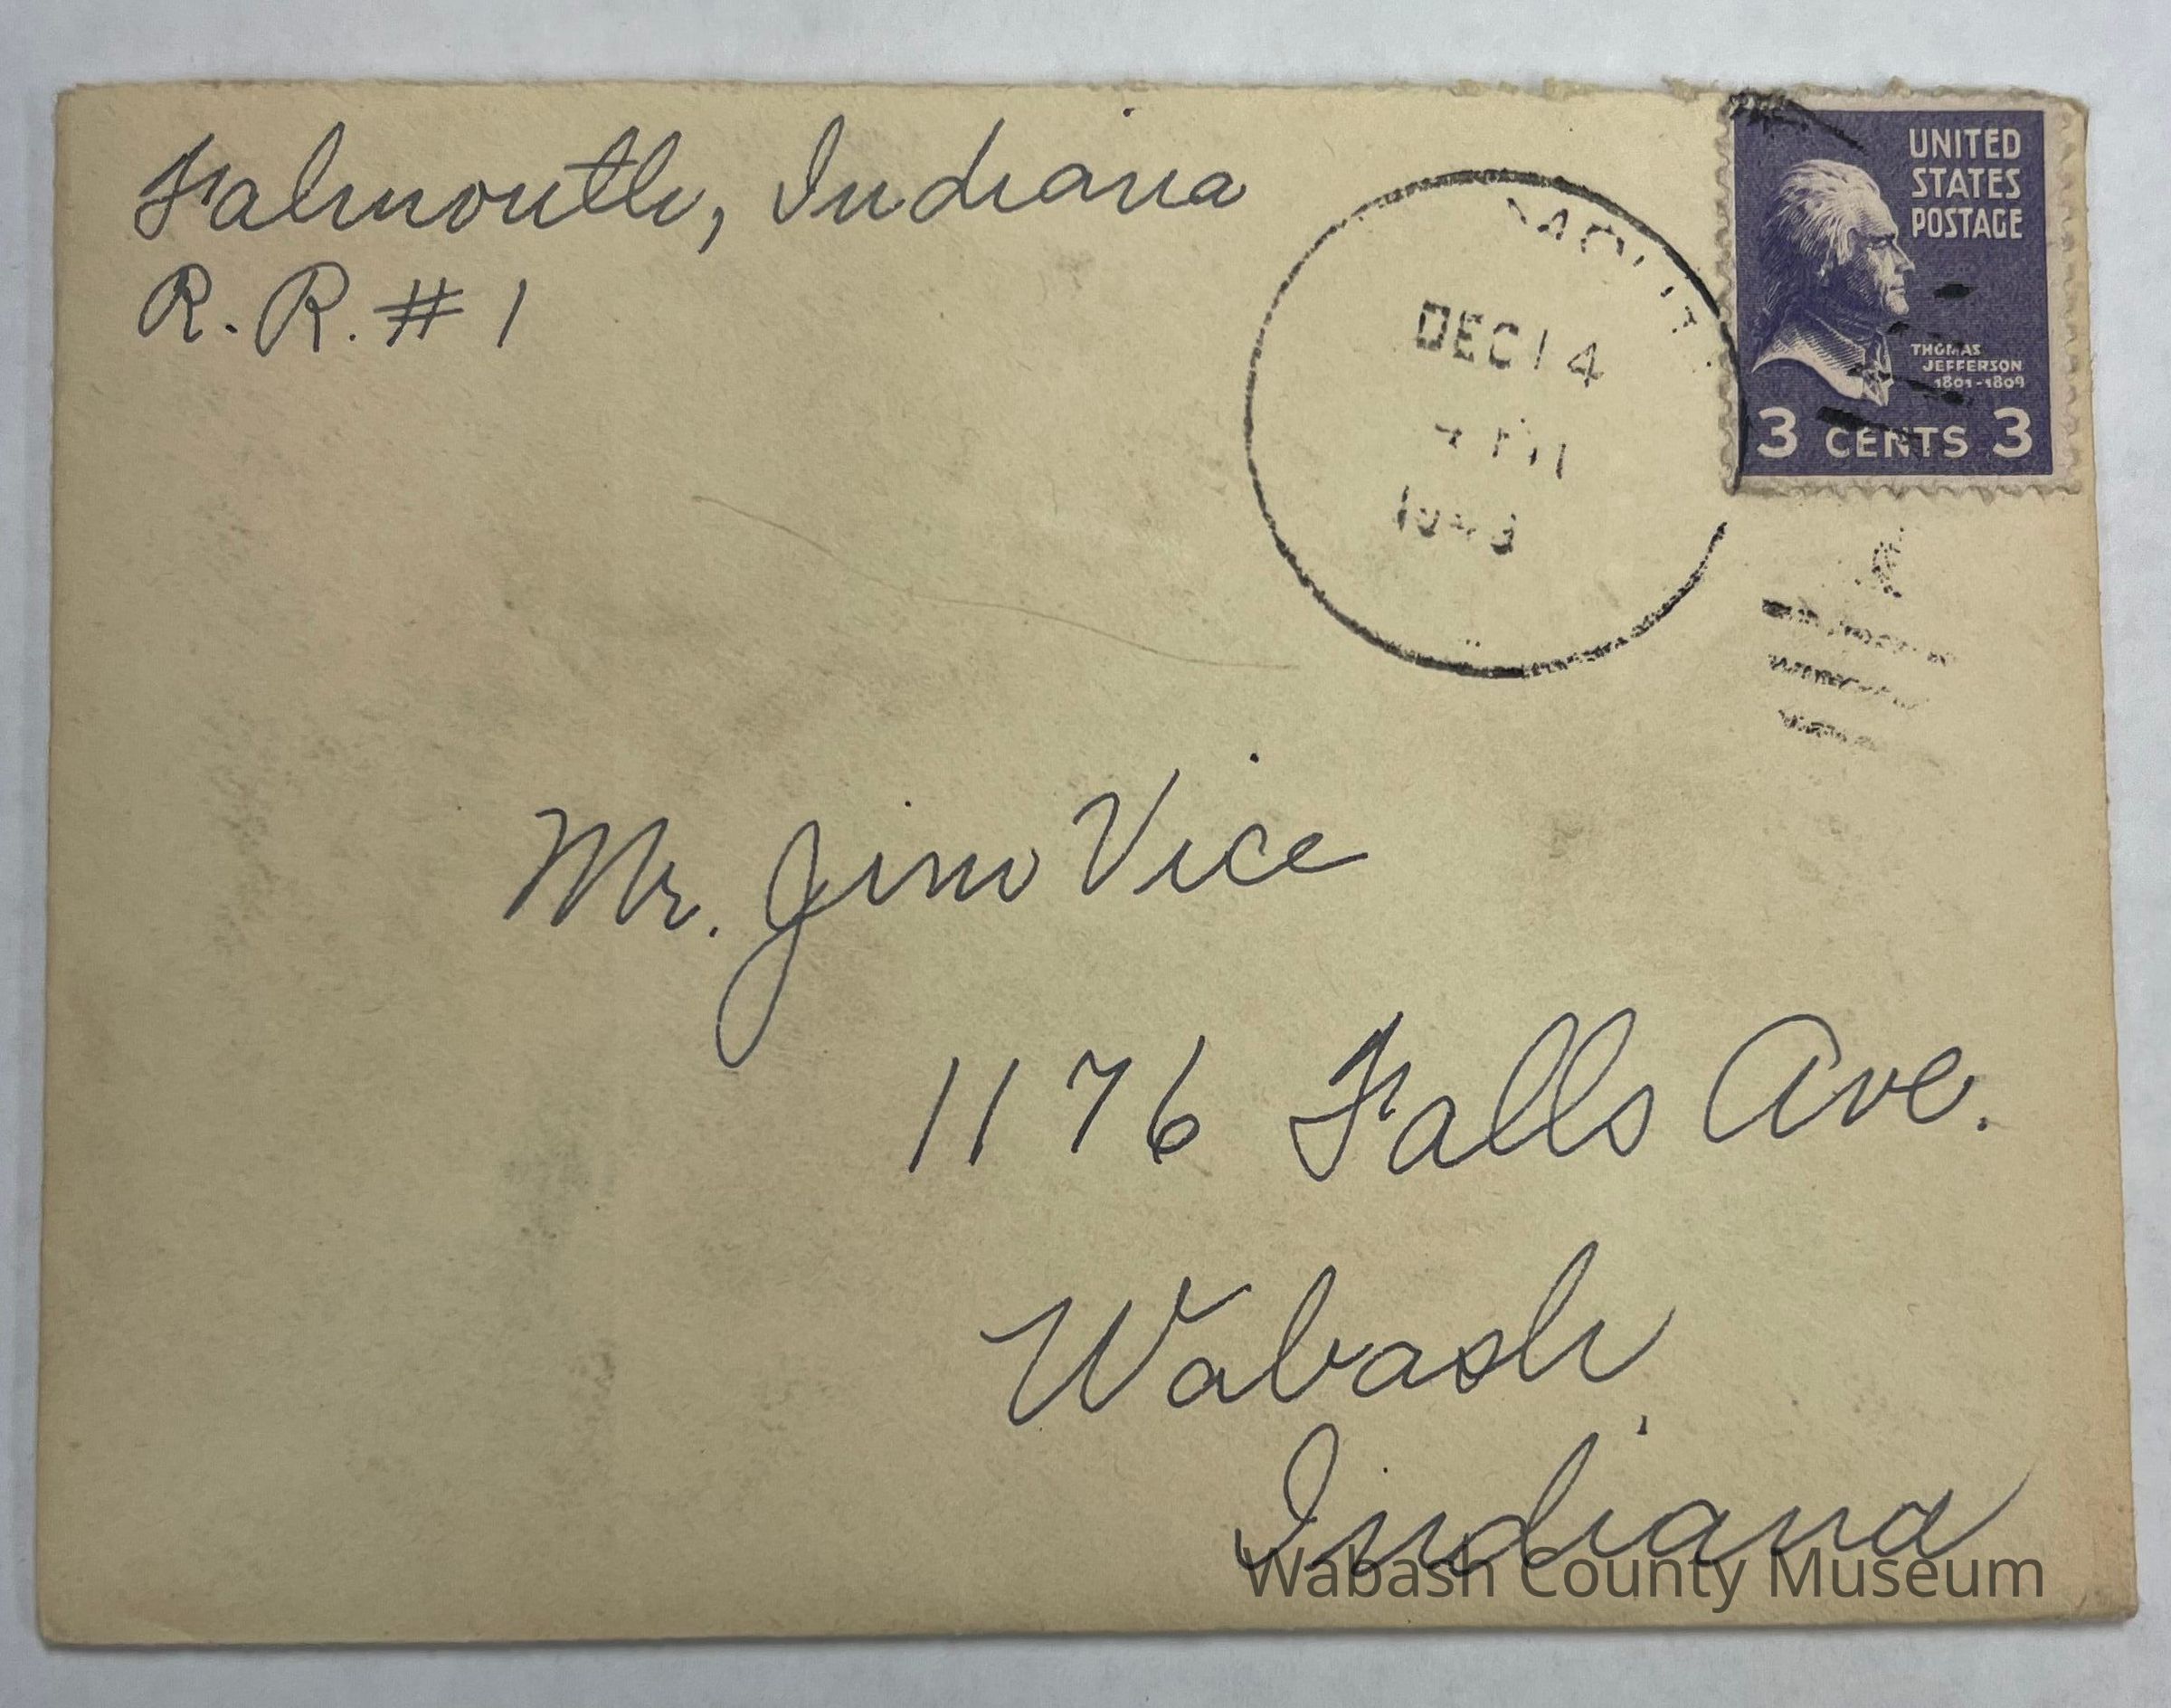 Falmouth, Indiana
R. R. # 1
DEC 14
UNITED
STATES
POSTAGE
THOMAS
JEFFERSON
1801-1809
3 CENTS 3
Mr. Jim Vice
1176 Falls Ave.
Wabash
Indiana
Wabash County Museum